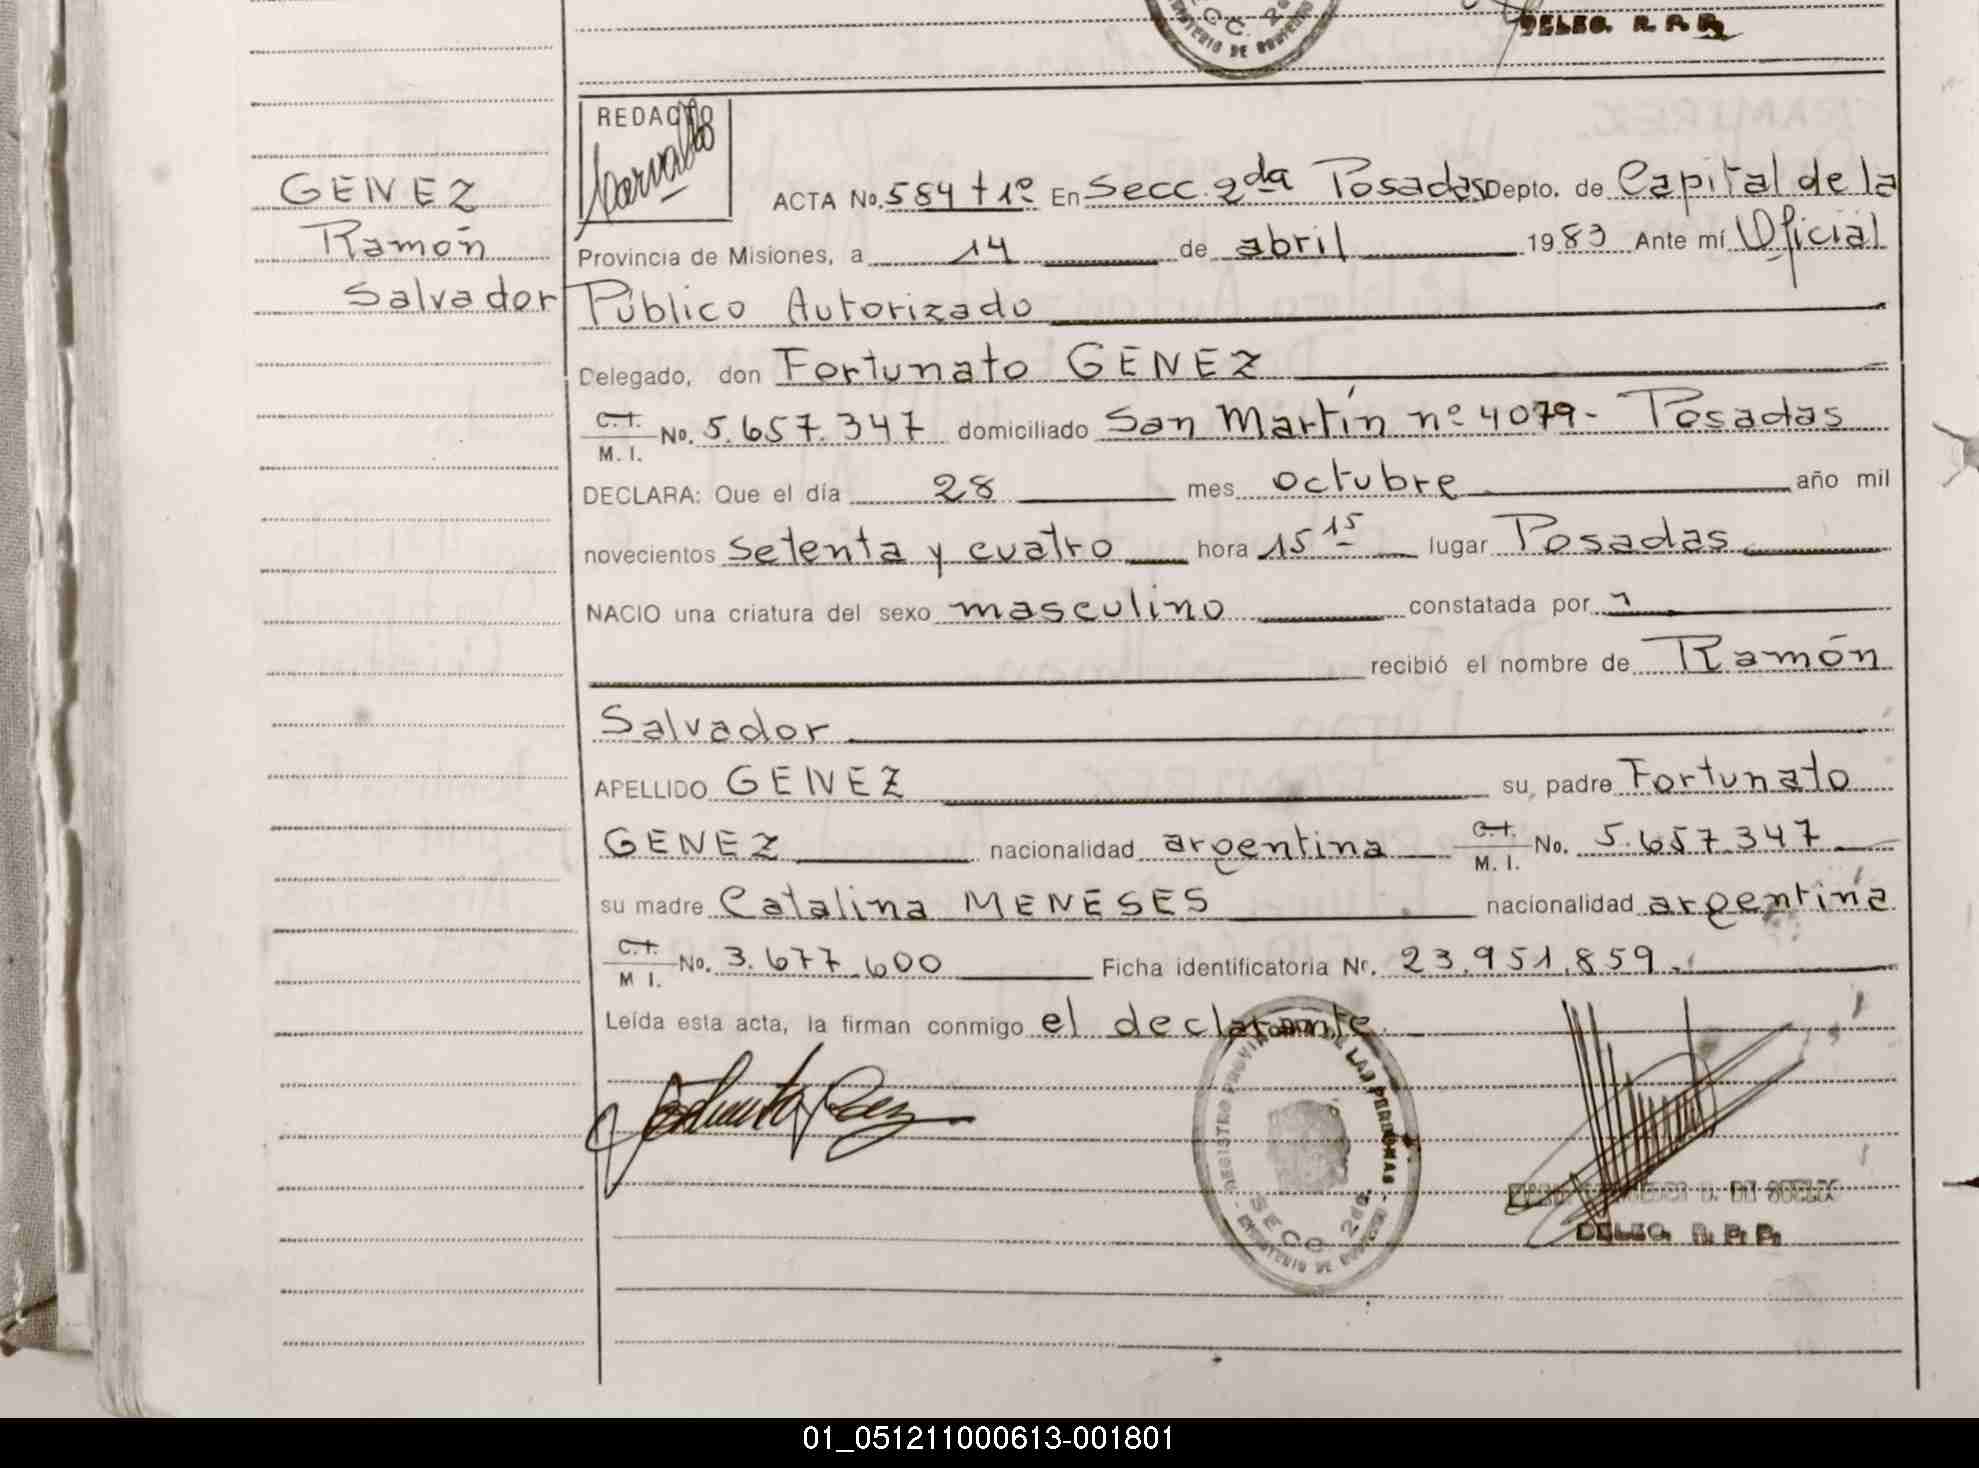 DELEG. R. P. P.
SECC. 2da
MINISTERIO DE GOBIERNO
REDACTO
Carvallo
GENEZ
Ramón
Salvador
ACTA No. 584 t 1º En Secc. 2da Posadas Depto. de Capital de la
Provincia de Misiones, a 14 de abril 1983 Ante mí Oficial
Público Autorizado
Delegado, don Fortunato GENEZ
C.I. M. I. No. 5.657.347 domiciliado San Martín nº 4079- Posadas
DECLARA: Que el día 28 mes octubre año mil
novecientos setenta y cuatro hora 15 15 lugar Posadas
NACIO una criatura del sexo masculino constatada por
recibió el nombre de Ramón
Salvador
APELLIDO GENEZ su padre Fortunato
GENEZ nacionalidad argentina C.I. M. I. No. 5.657.347
su madre Catalina MENESES nacionalidad argentina
C.I. M I. No. 3.677.600 Ficha identificatoria Nr. 23.951.859.
Leída esta acta, la firman conmigo el declarante.
REGISTRO PROVINCIAL DE LAS PERSONAS
SECC. 2da.
MINISTERIO DE GOBIERNO
DELEG. R. P. P.
01_051211000613-001801